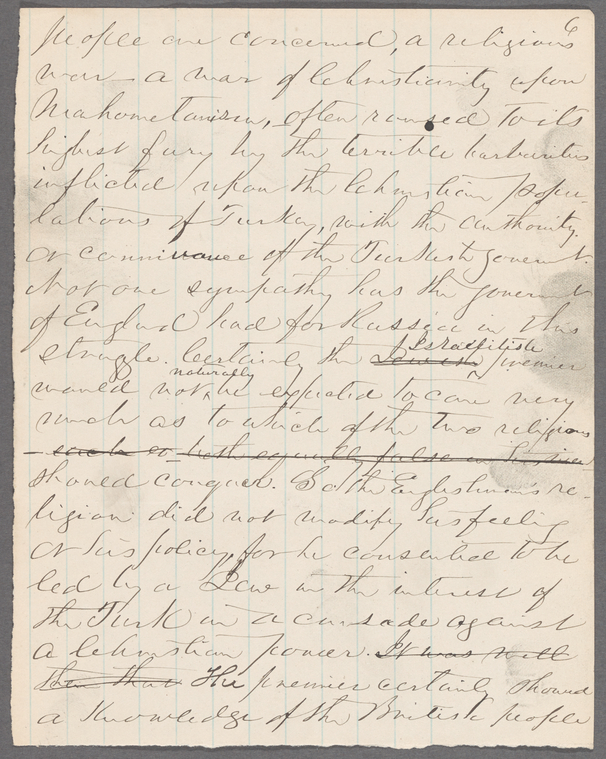 6
people are concerned, a religious
war - a war of Christianity upon
Mahometanism, often roused to its
highest fury by the terrible barbarities
inflicted upon the Christian popu-
lations of Turkey, with the authority
or connivance of the Turkish governt.
Not one sympathy has the governt
of England had for Russia in this
struggle. Certainly the Jewish Israelitish premier
would not naturally be expected to care very
much as to which of the two religions
- each or both equally false in his view
should conquer. So the Englishman's re-
ligion did not modify his feeling
or his policy, for he consented to be
led by a Jew in the interest of
the Turk in a crusade against
a Christian power. It was well
then that The premier certainly showed
a knowledge of the British people